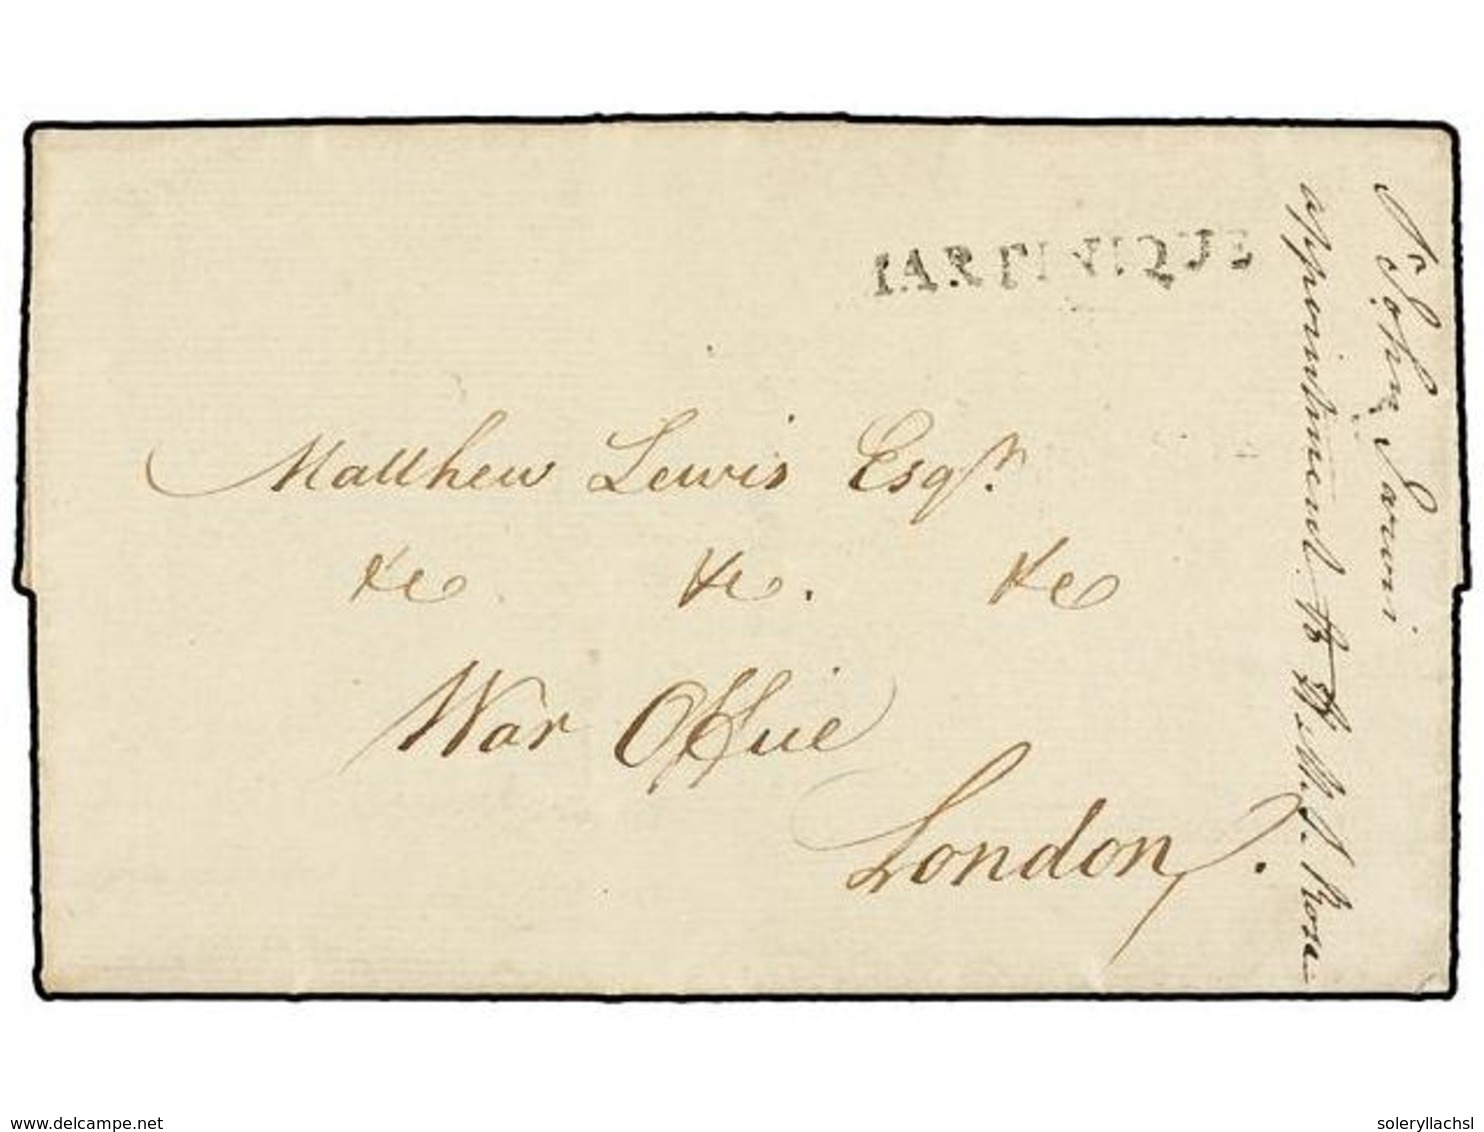 MARTINIQUE
Matthew Lewis Esqr.
&c &c. &c
War Office
London
Sr John
appointment
www.delcampe.net
soleryllachsl